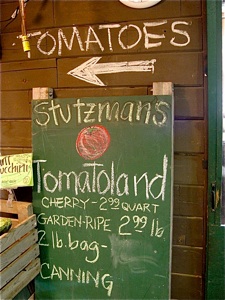 TOMATOES
Stutzman's
Tomatoland
CHERRY - 2.99 QUART
GARDEN-RIPE 2.99 lb
2 lb. bag -
CANNING